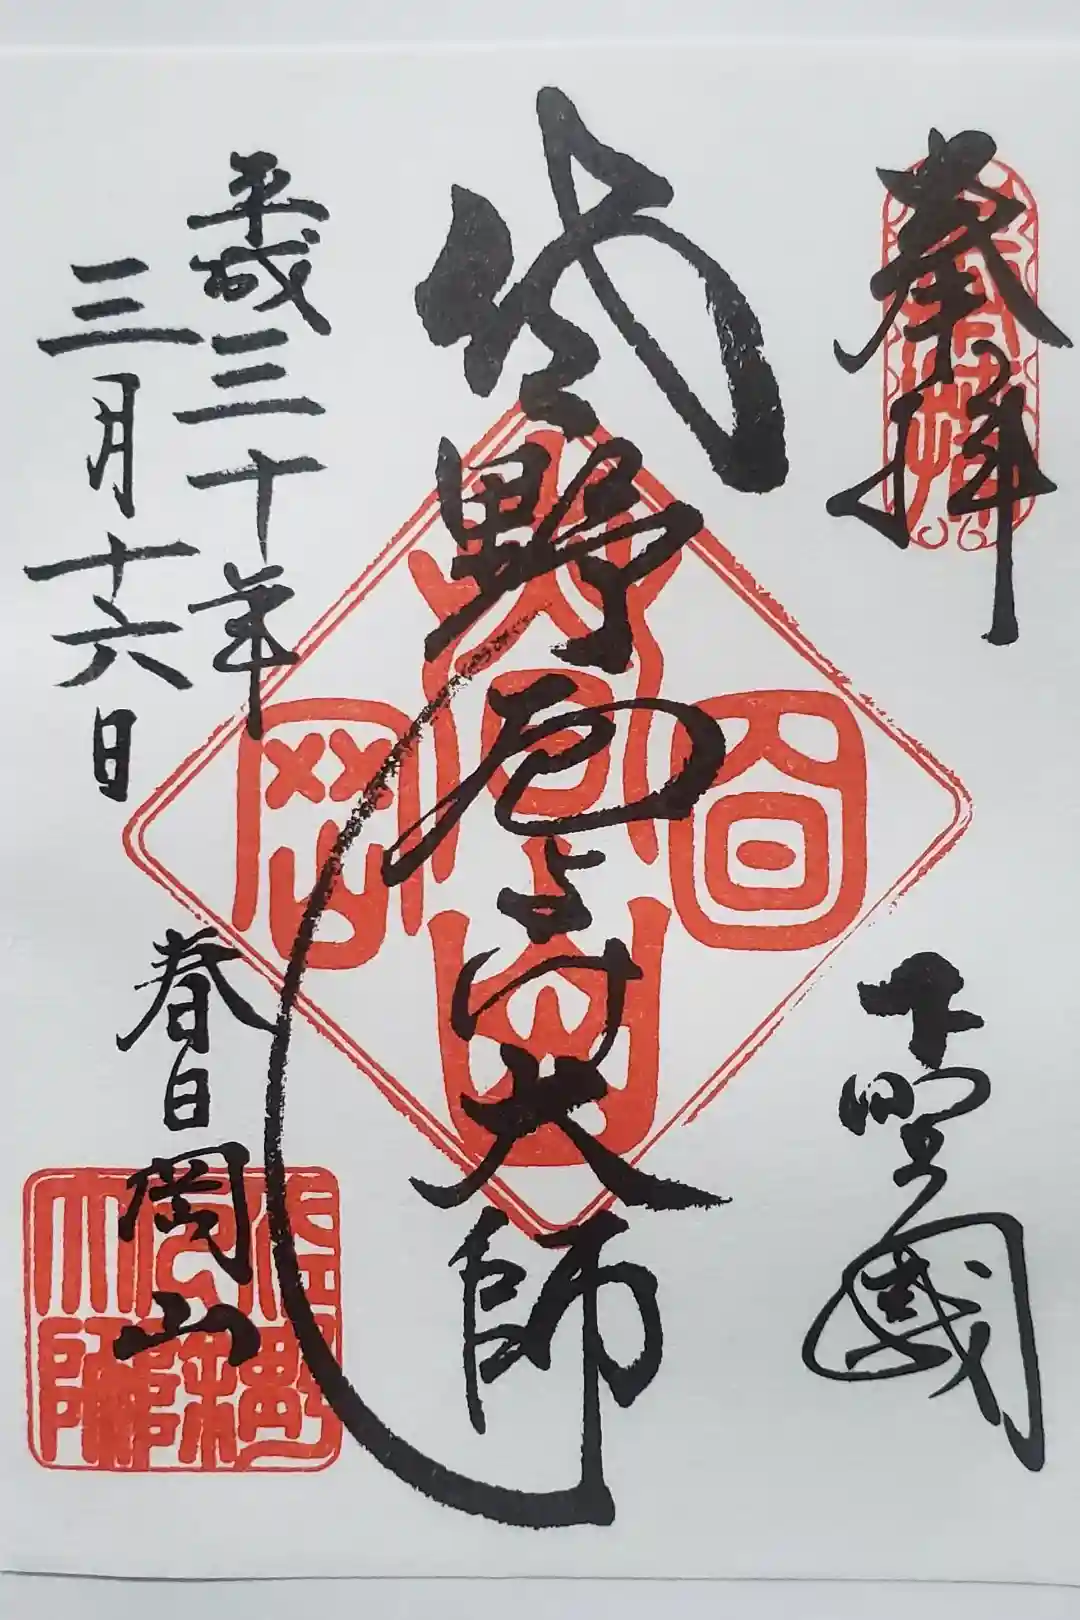 奉拝
下野國
佐野厄よけ大師
平成三十年
三月十六日
春日岡山